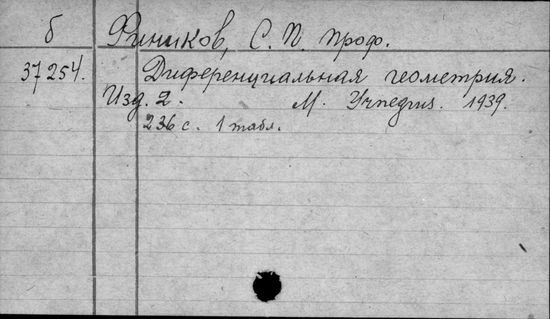 б Фиников, С. П. проф.
37254. Диференциальная геометрия.
Изд. 2. М. Учпедгиз. 1939.
236 с. 1 табл.